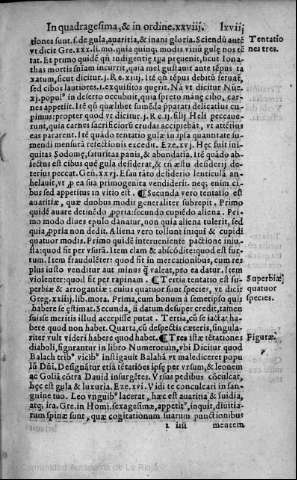 In quadragesima, & in ordine. xxviij. lxvij
tiones sunt s. de gula, auaritia, & inani gloria. Sciendũ autẽ
vt dicit Gre. xxx. li. mo. quia quinq; modis vitiũ gulę nos tẽ
tat. Et primo quidẽ qñ indigentię tpa pręuenit, sicut Iona-
thas mortis sñiam incurrit, quia mel gustauit ante tẽpus ta
xatum, sicut dicitur. j. Re. xiiij. Itẽ qñ tẽpus debitũ seruat,
sed cibos lautiores. i. exquisitos quęrit. Nã vt dicitur Nũe.
xj. populꝰ in deserto occubuit, quia spreto manę cibo, car-
nes appetiit. Itẽ qñ qualibet sumẽda apparari delicatius cu
pimus: propter quod vt dicitur. j. R. ij. filij Heli peccaue-
runt, quia carnes sacrificiorũ crudas accipiebãt, vt attẽtius
eas pararent. Itẽ quãdo tentatio gulę in ipsa quantitate su-
mendi mensurã refectionis excedit. Eze. xvj. Hęc fuit ini-
quitas Sodomę, saturitas panis, & abundantia. Itẽ quãdo ab-
iectus est cibus quẽ gula desiderat, & eñ æstu desiderij de-
terius peccat. Gen. xxvj. Esau tãto desiderio lenticulã an-
helauit, vt p ea sua primogenita venderet. neq; enim ci-
bus sed appetitus in vitio est. ¶ Secunda vero tentatio est
auaritiæ, quæ duobus modis generaliter subrepit. Primo
quidẽ auare detinẽdo ppria: secundo cupiẽdo aliena. Pri-
mo modo diues epulo damnatur, non quia aliena tulerit, sed
quia ppria non dedit. Aliena vero tollunt iniqui & cupidi
quatuor modis. Primo quidẽ interueniente pactione iniu-
sta: quod fit per vsurã. Item clam & abscõdite: quod est fur-
tum. Item fraudulẽter: quod fit in mercationibus, cum res
plus iusto venditur aut minus q̃ valeat, pro ea datur. Item
violenter: quod fit per rapinam. ¶ Tertia tentatio est su-
perbiæ & arrogantiæ: cuius quatuor sunt species, vt dicit
Greg. xxiiij. lib. mora. Prima, cum bonum à semetipso quis
habere se ęstimat. Secunda, si datum desuper credit, tamen
suisse meritis illud accepisse putat. Tertia, cũ se iactat ha-
bere quod non habet. Quarta, cũ despectis cæteris, singula-
riter vult videri habere quod habet. ¶ Tres istæ tẽtationes
diaboli, figurantur in libro Numerorum, vbi Dicitur quod
Balach trib⁹ vicib⁹ instigauit Balahã vt malediceret popu
lũ Dñi. Designãtur etiã tẽtatiões ipsę per vrsum, & leonem
ac Goliã cõtra Dauid insurgẽtes. Vrsus pedibus cõculcat,
hęc est gula & luxuria. Eze. xvi. Vidi te conculcari in san-
guine tuo. Leo vnguib⁹ lacerat, hæc est auaritia & suidia,
atq; ira. Gre. in Homi. sexagesimæ, appetitꝰ, inquit, diuitia-
rum spinæ sunt, quæ cogitationum suarum punctionibus
i iiij mentem
Tentatio
nes tres.
Superbiæ
quatuor
species.
Figuræ.